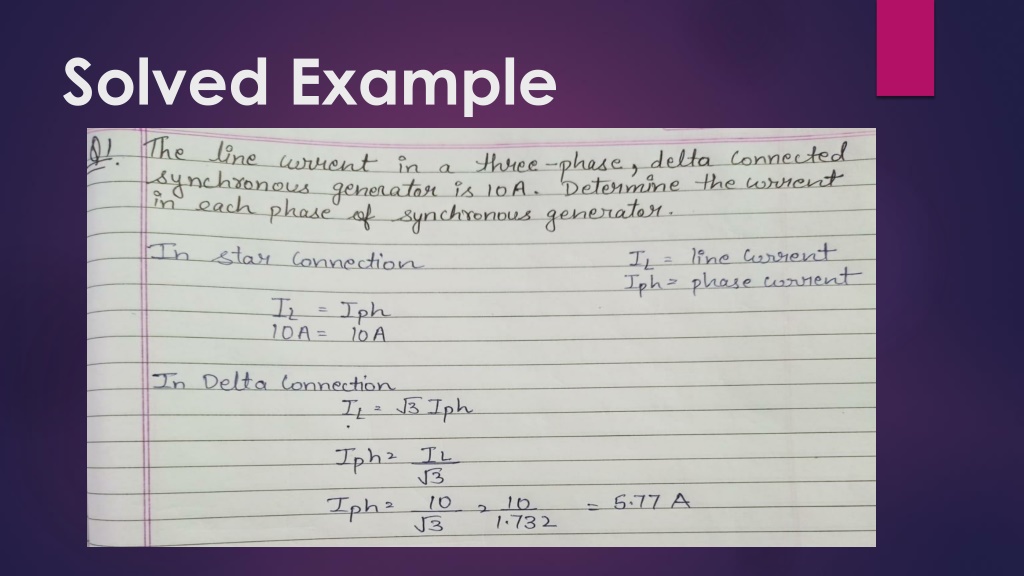 Solved Example
Q1. The line current in a three-phase, delta connected
synchronous generator is 10A. Determine the current
in each phase of synchronous generator.
In star connection
I_L = line current
Iph = phase current
I_L = Iph
10A = 10A
In Delta Connection
I_L = √3 Iph
Iph = I_L / √3
Iph = 10 / √3 = 10 / 1.732 = 5.77 A